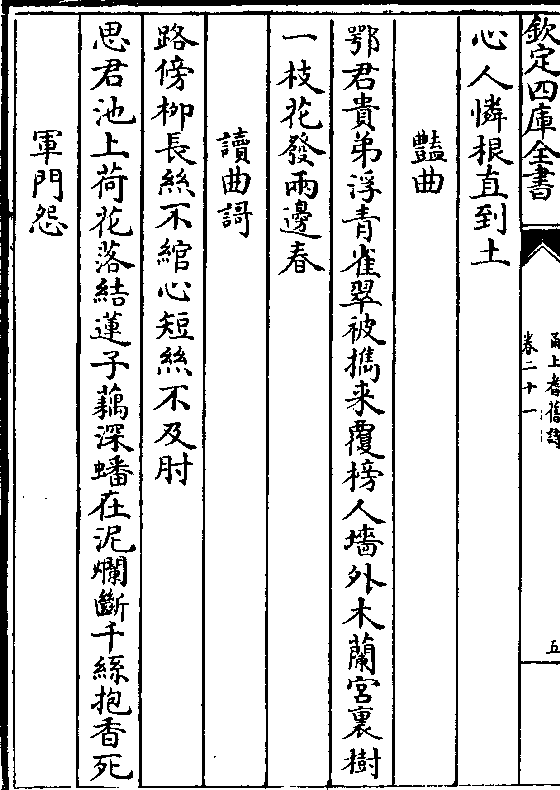 欽定四庫全書
甬上耆舊詩
卷二十一
五
心人憐根直到土
豔曲
鄂君貴弟浮青雀翠被攜来覆榜人墻外木蘭宮裏樹
一枝花發兩邊春
讀曲謌
路傍柳長絲不綰心短絲不及肘
思君池上荷花落結蓮子藕深蟠在泥爛斷千絲抱香死
軍門怨